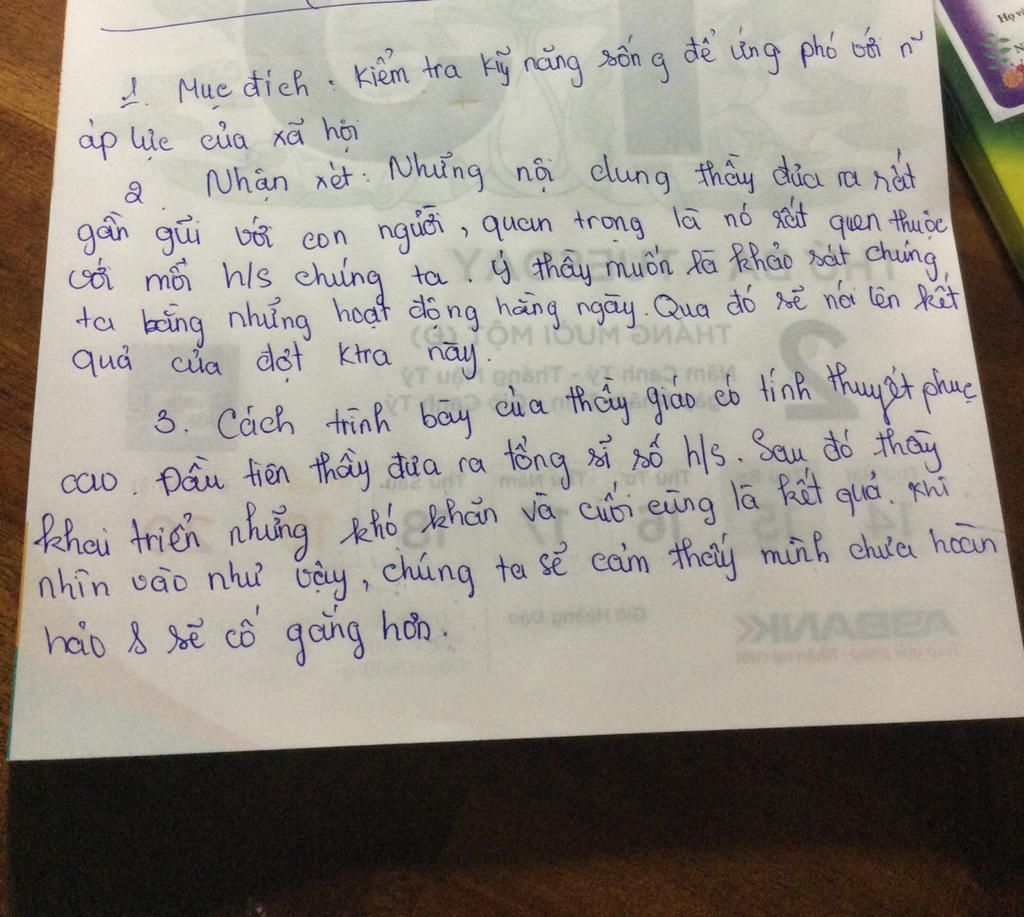 1. Mục đích : Kiểm tra kỹ năng sống để ứng phó với n~
áp lực của xã hội
2. Nhận xét: Những nội dung thầy đưa ra rất
gần gũi với con người, quan trọng là nó rất quen thuộc
với mỗi h/s chúng ta. Ý thầy muốn là khảo sát chúng
ta bằng những hoạt động hằng ngày. Qua đó sẽ nói lên kết
quả của đợt ktra này.
3. Cách trình bày của thầy giáo có tính thuyết phục
cao. Đầu tiên thầy đưa ra tổng sĩ số h/s. Sau đó thầy
khai triển những khó khăn và cuối cùng là kết quả. Khi
nhìn vào như vậy, chúng ta sẽ cảm thấy mình chưa hoàn
hảo & sẽ cố gắng hơn.
THỨ BA - TUESDAY
2
THÁNG MƯỜI MỘT (Đ)
Năm Canh Tý - Tháng Mậu Tý
14 15 16 17 18
Giờ Hoàng Đạo
ABBANK
Họ v
N